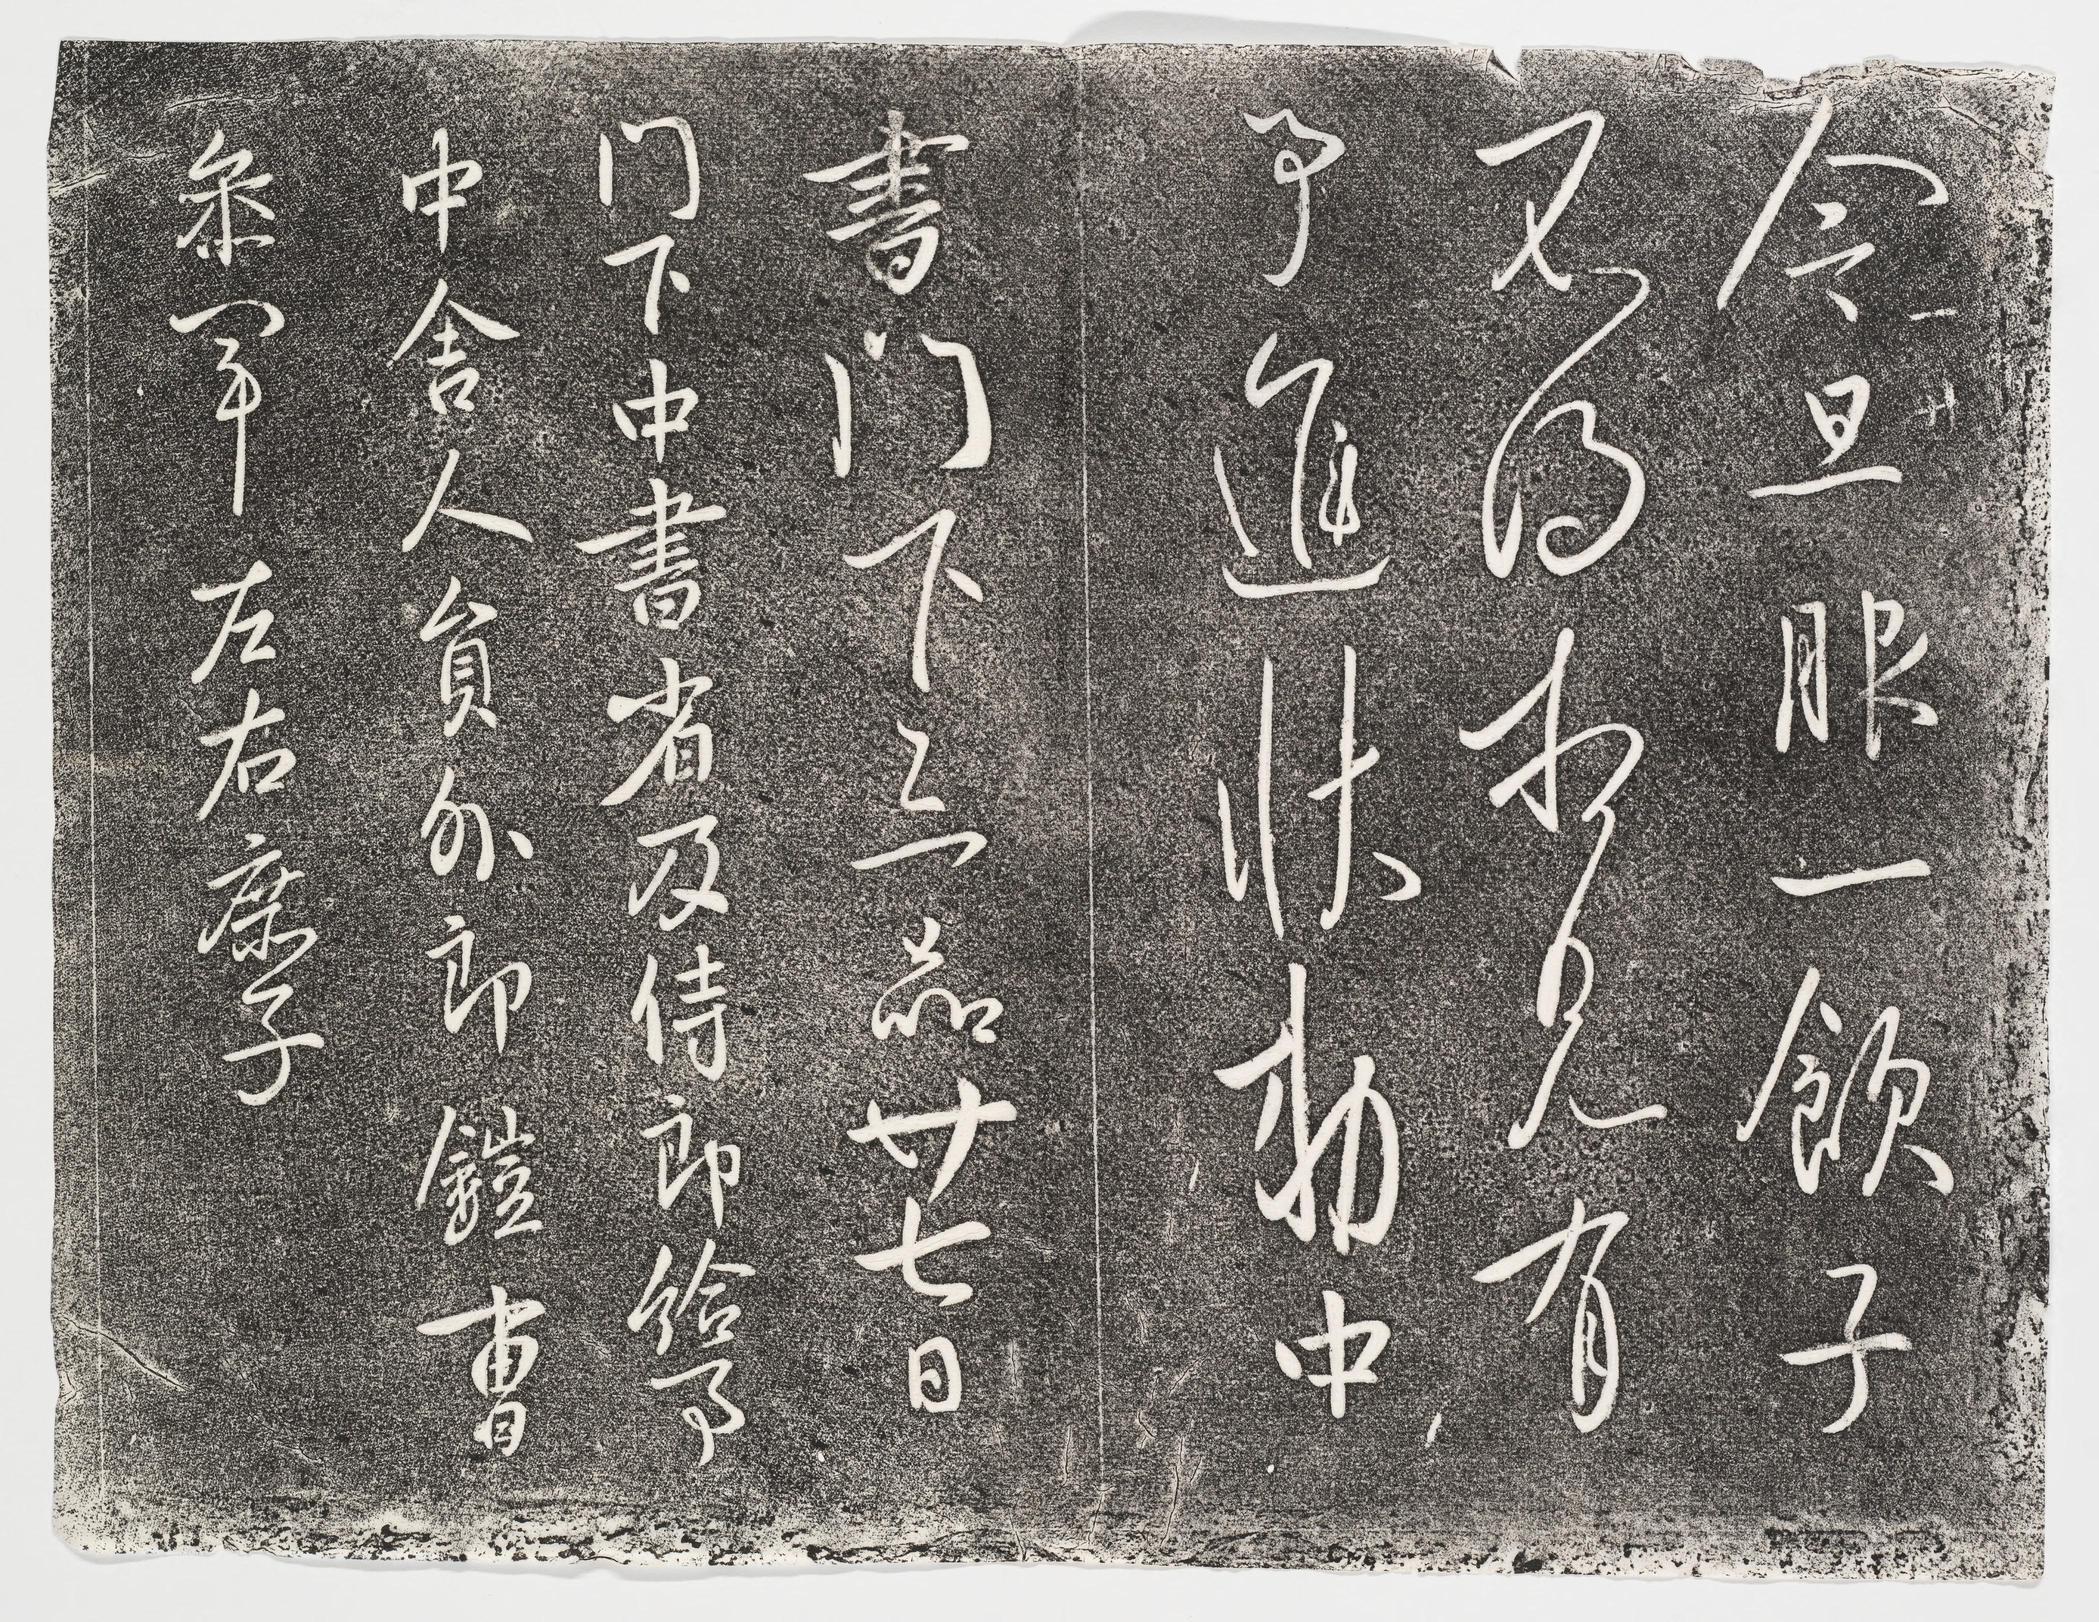 今旦服一飲子
不為相見有
事進狀勑中
書門下三品廿七日
門下中書省及侍郎給事
中舍人員外郎鎧曹
參軍左右庶子